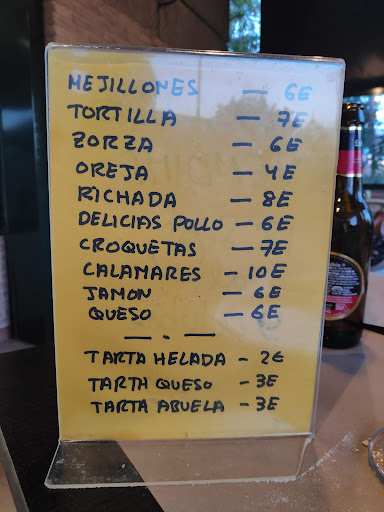 MEJILLONES — 6E
TORTILLA — 7E
ZORZA — 6E
OREJA — 4E
RICHADA — 8E
DELICIAS POLLO — 6E
CROQUETAS — 7E
CALAMARES - 10E
JAMON — 6E
QUESO — 6E
— . —
TARTA HELADA - 2E
TARTA QUESO - 3E
TARTA ABUELA - 3E